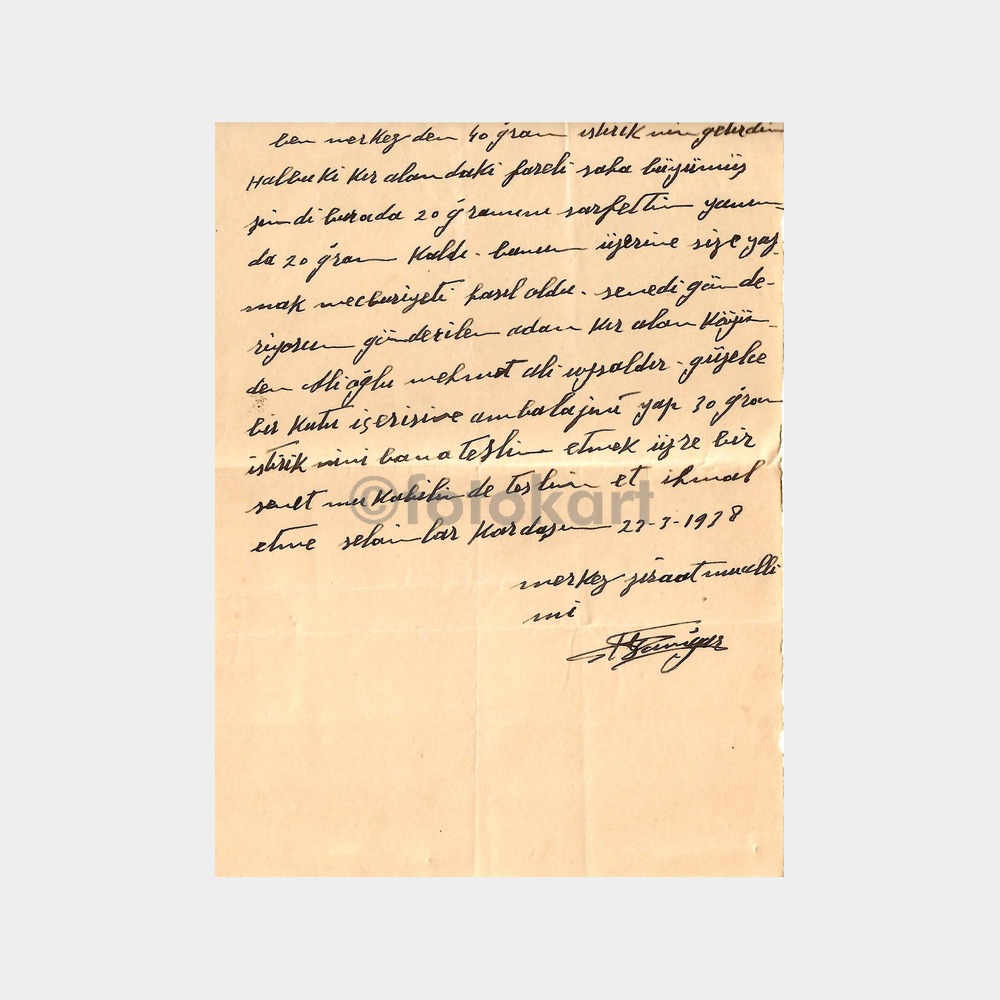 ben merkez den 40 gram istrik nin getirdim
Halbuki Kır alan daki fareli saha büyümüş
şim di burada 20 gramını sarfettim yanım-
da 20 gram Kaldı. bunun üzerine size yaz-
mak mecburiyeti hasıl oldu. senedi gönde-
riyorum gönderilen adam Kır alan Köyün-
den Ali oğlu mehmet Ali uysaldır. güzelce
bir Kutu içerisine ambalajını yap 30 gram
istrik nini bana teslim etmek üzre bir
senet mukabilin de teslim et ihmal
etme selamlar Kardaşım 23-3-1938
merkez ziraat mualli
mi
©fotokart